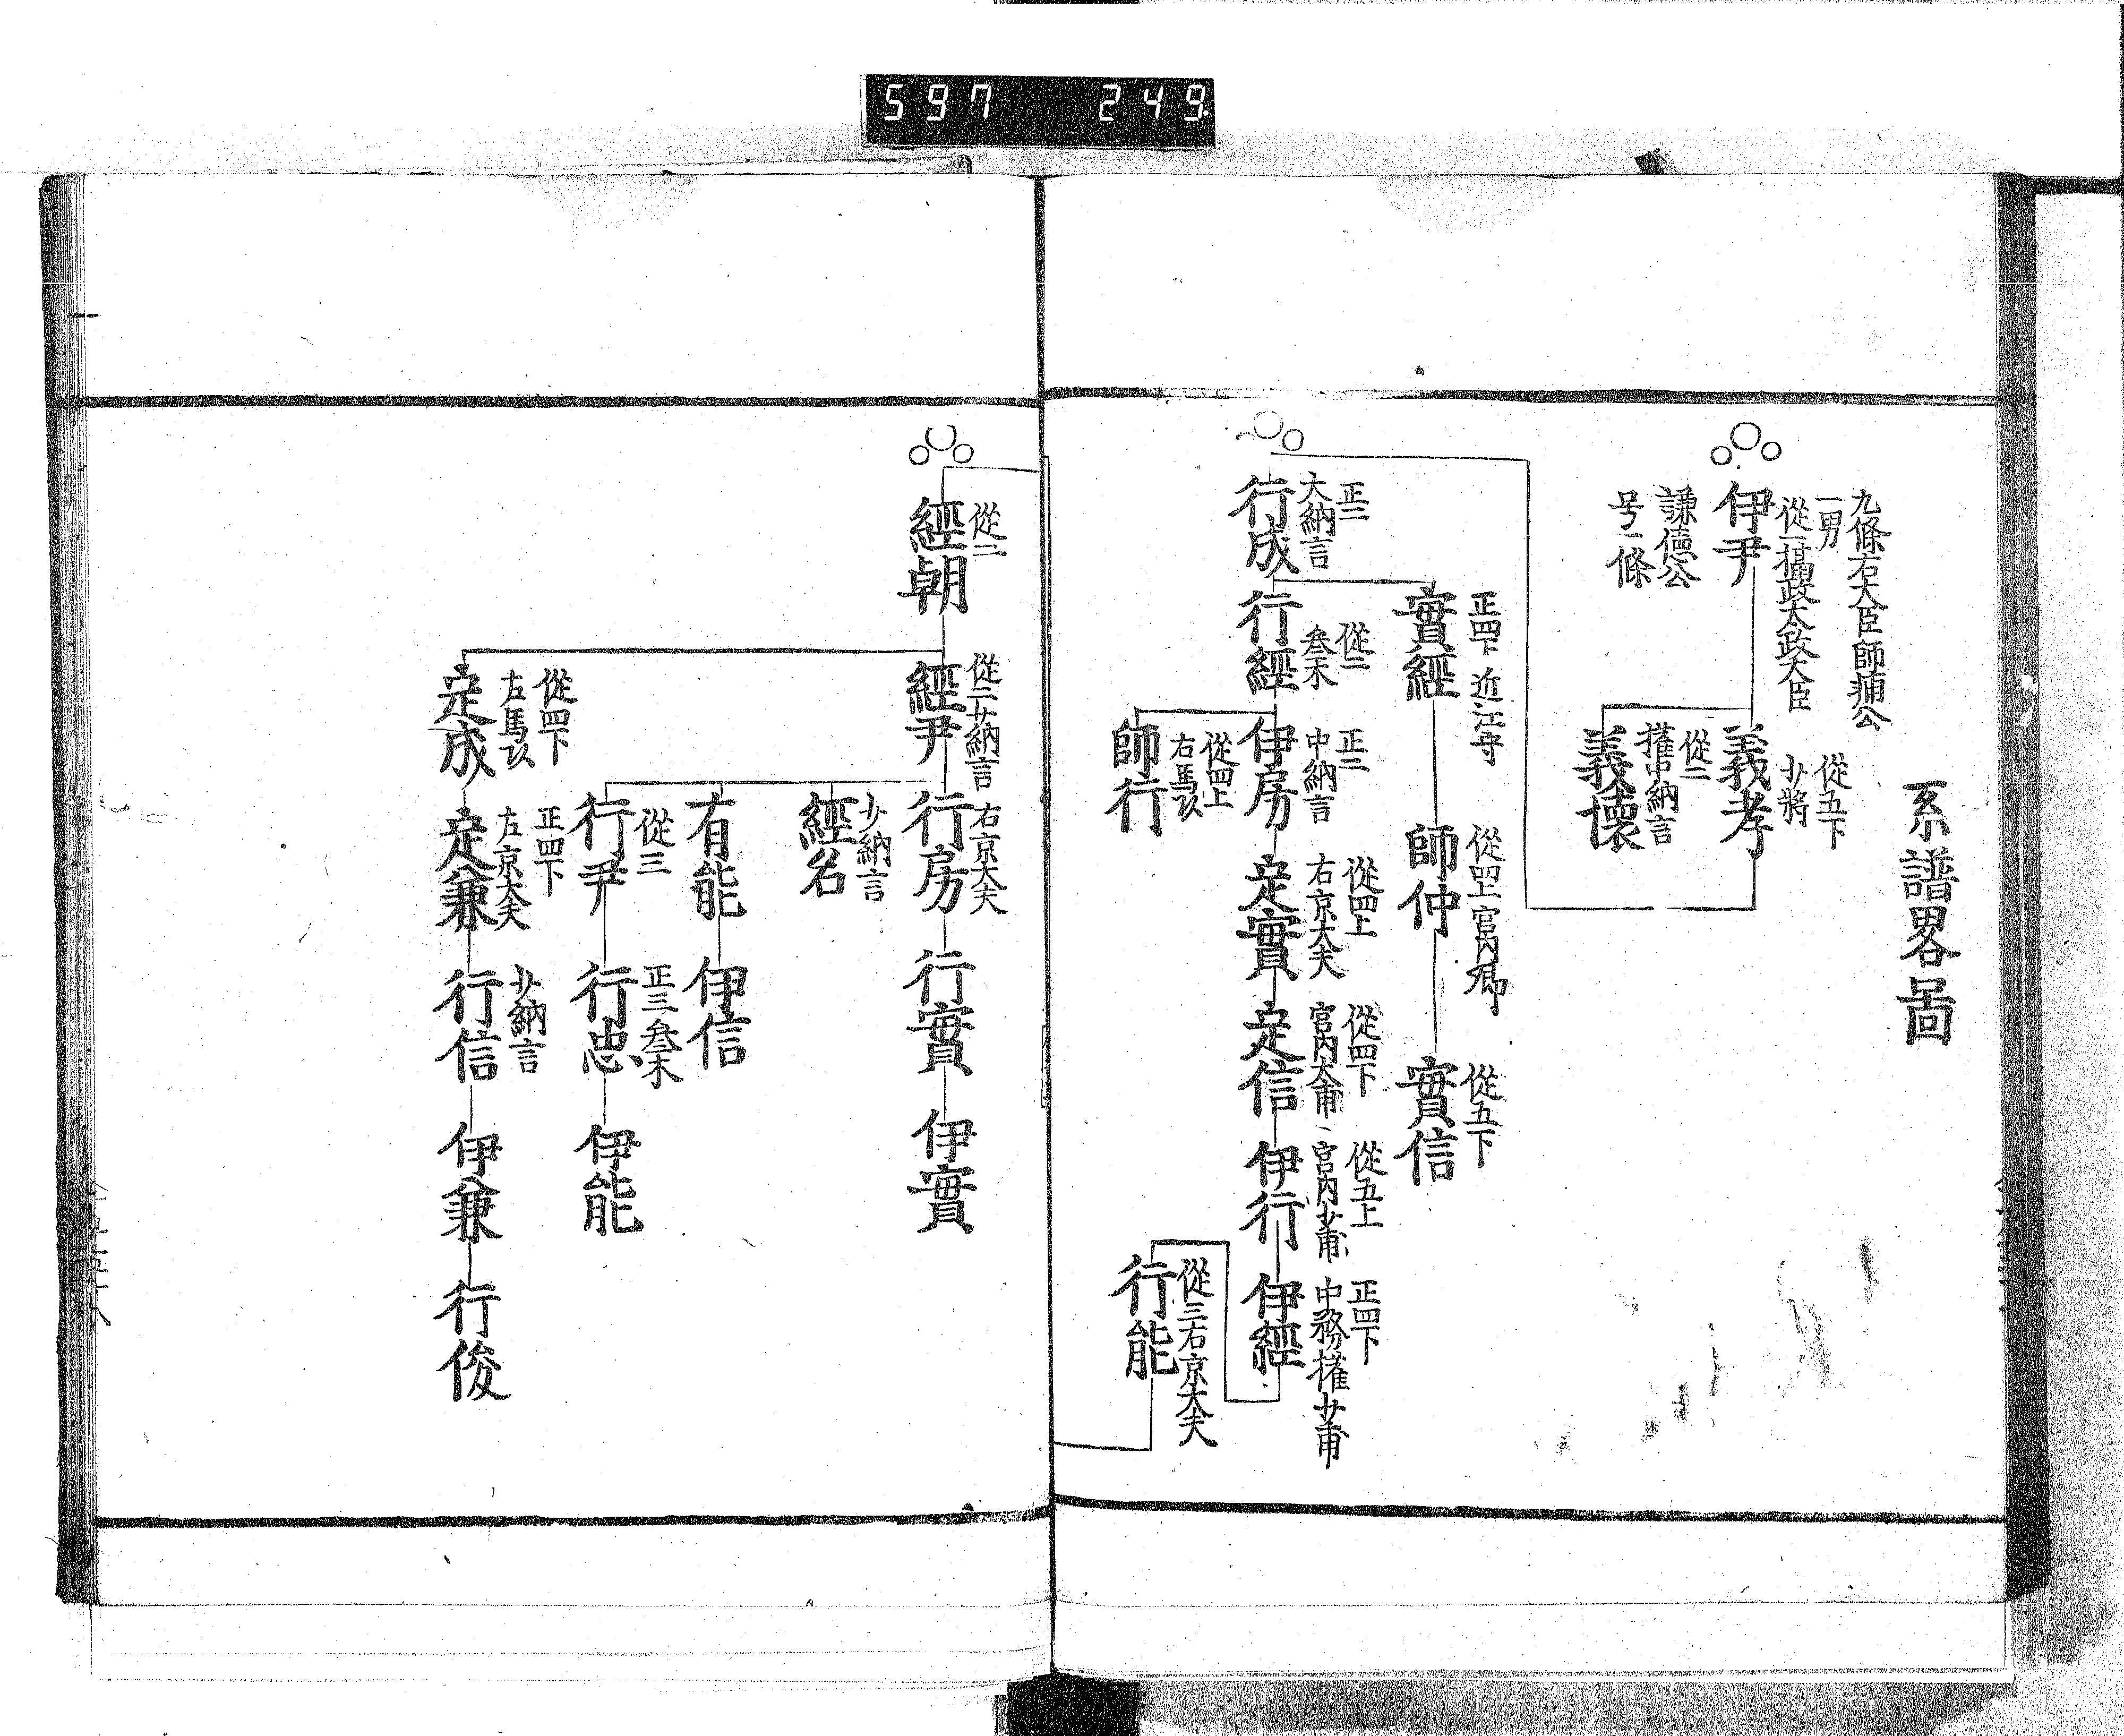 597 249
系譜畧啚
九條右大臣師輔公
一男
從一攝政太政大臣
伊尹
謙德公
号一條
從五下
少將
義孝
從二
権中納言
義懷
正二
大納言
行成
正四下 近江守
實經
從四上宮內卿
師仲
從五下
實信
從二
叅木
行經
正二
中納言
伊房
從四上
右馬頭
師行
從四上
右京大夫
定實
從四下
宮內大甫
定信
從五上
宮內少甫
伊行
正四下
中務権少甫
伊經
從三右京大夫
行能
從二
經朝
從二少納言
經尹
右京大夫
行房
行實
伊實
少納言
經名
有能
伊信
從三
行尹
正三叅木
行忠
伊能
從四下
左馬頭
定成
正四下
左京大夫
定兼
少納言
行信
伊兼
行俊